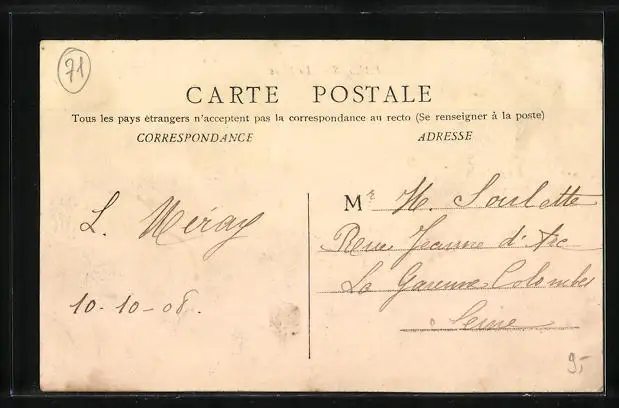 71
CARTE POSTALE
Tous les pays étrangers n'acceptent pas la correspondance au recto (Se renseigner à la poste)
CORRESPONDANCE
ADRESSE
L. Méray
10-10-08.
Mr H. Soulette
Rue Jeanne d'Arc
La Garenne-Colombes
Seine
9,-